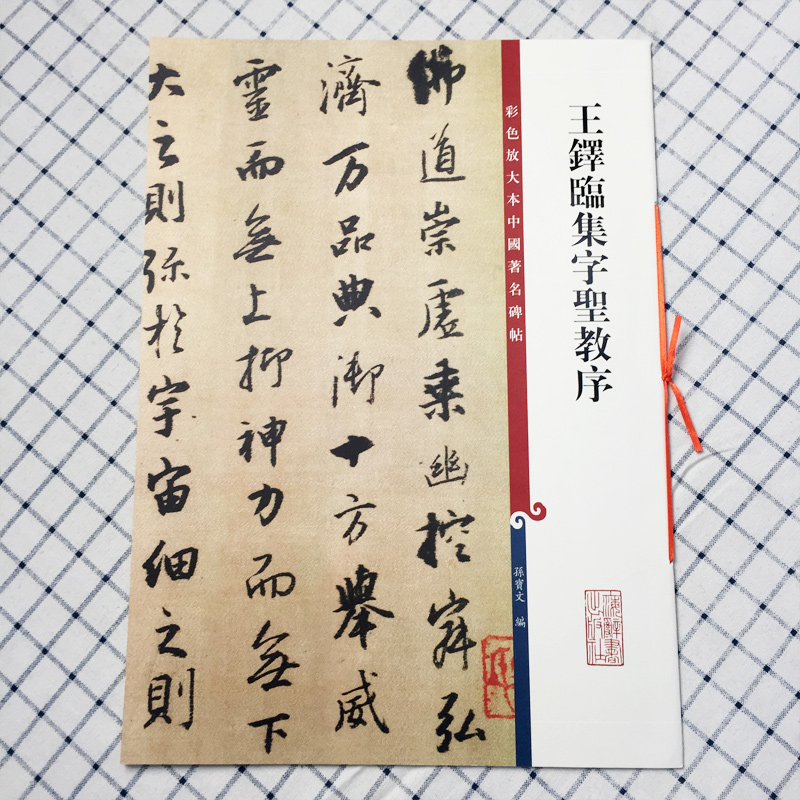 王鐸臨集字聖教序
上海辭書出版社
彩色放大本中國著名碑帖
孫寶文 編
佛道崇虛乘幽控寂弘
濟万品典御十方舉威
靈而無上抑神力而無下
大之則弥於宇宙細之則